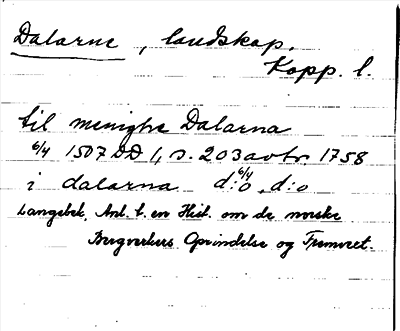 Dalarne, landskap.
Kopp. l.
til menighe Dalarna
6/4 1507 DD 1, s. 203 avtr. 1758
i dalarna d:o 6/4, d:o
Langebek, Anl. t. en Hist. om de norske
Bergverkers Oprindelse og Fremvext.